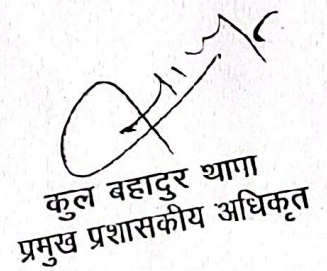 कुल बहादुर थापा
प्रमुख प्रशासकीय अधिकृत